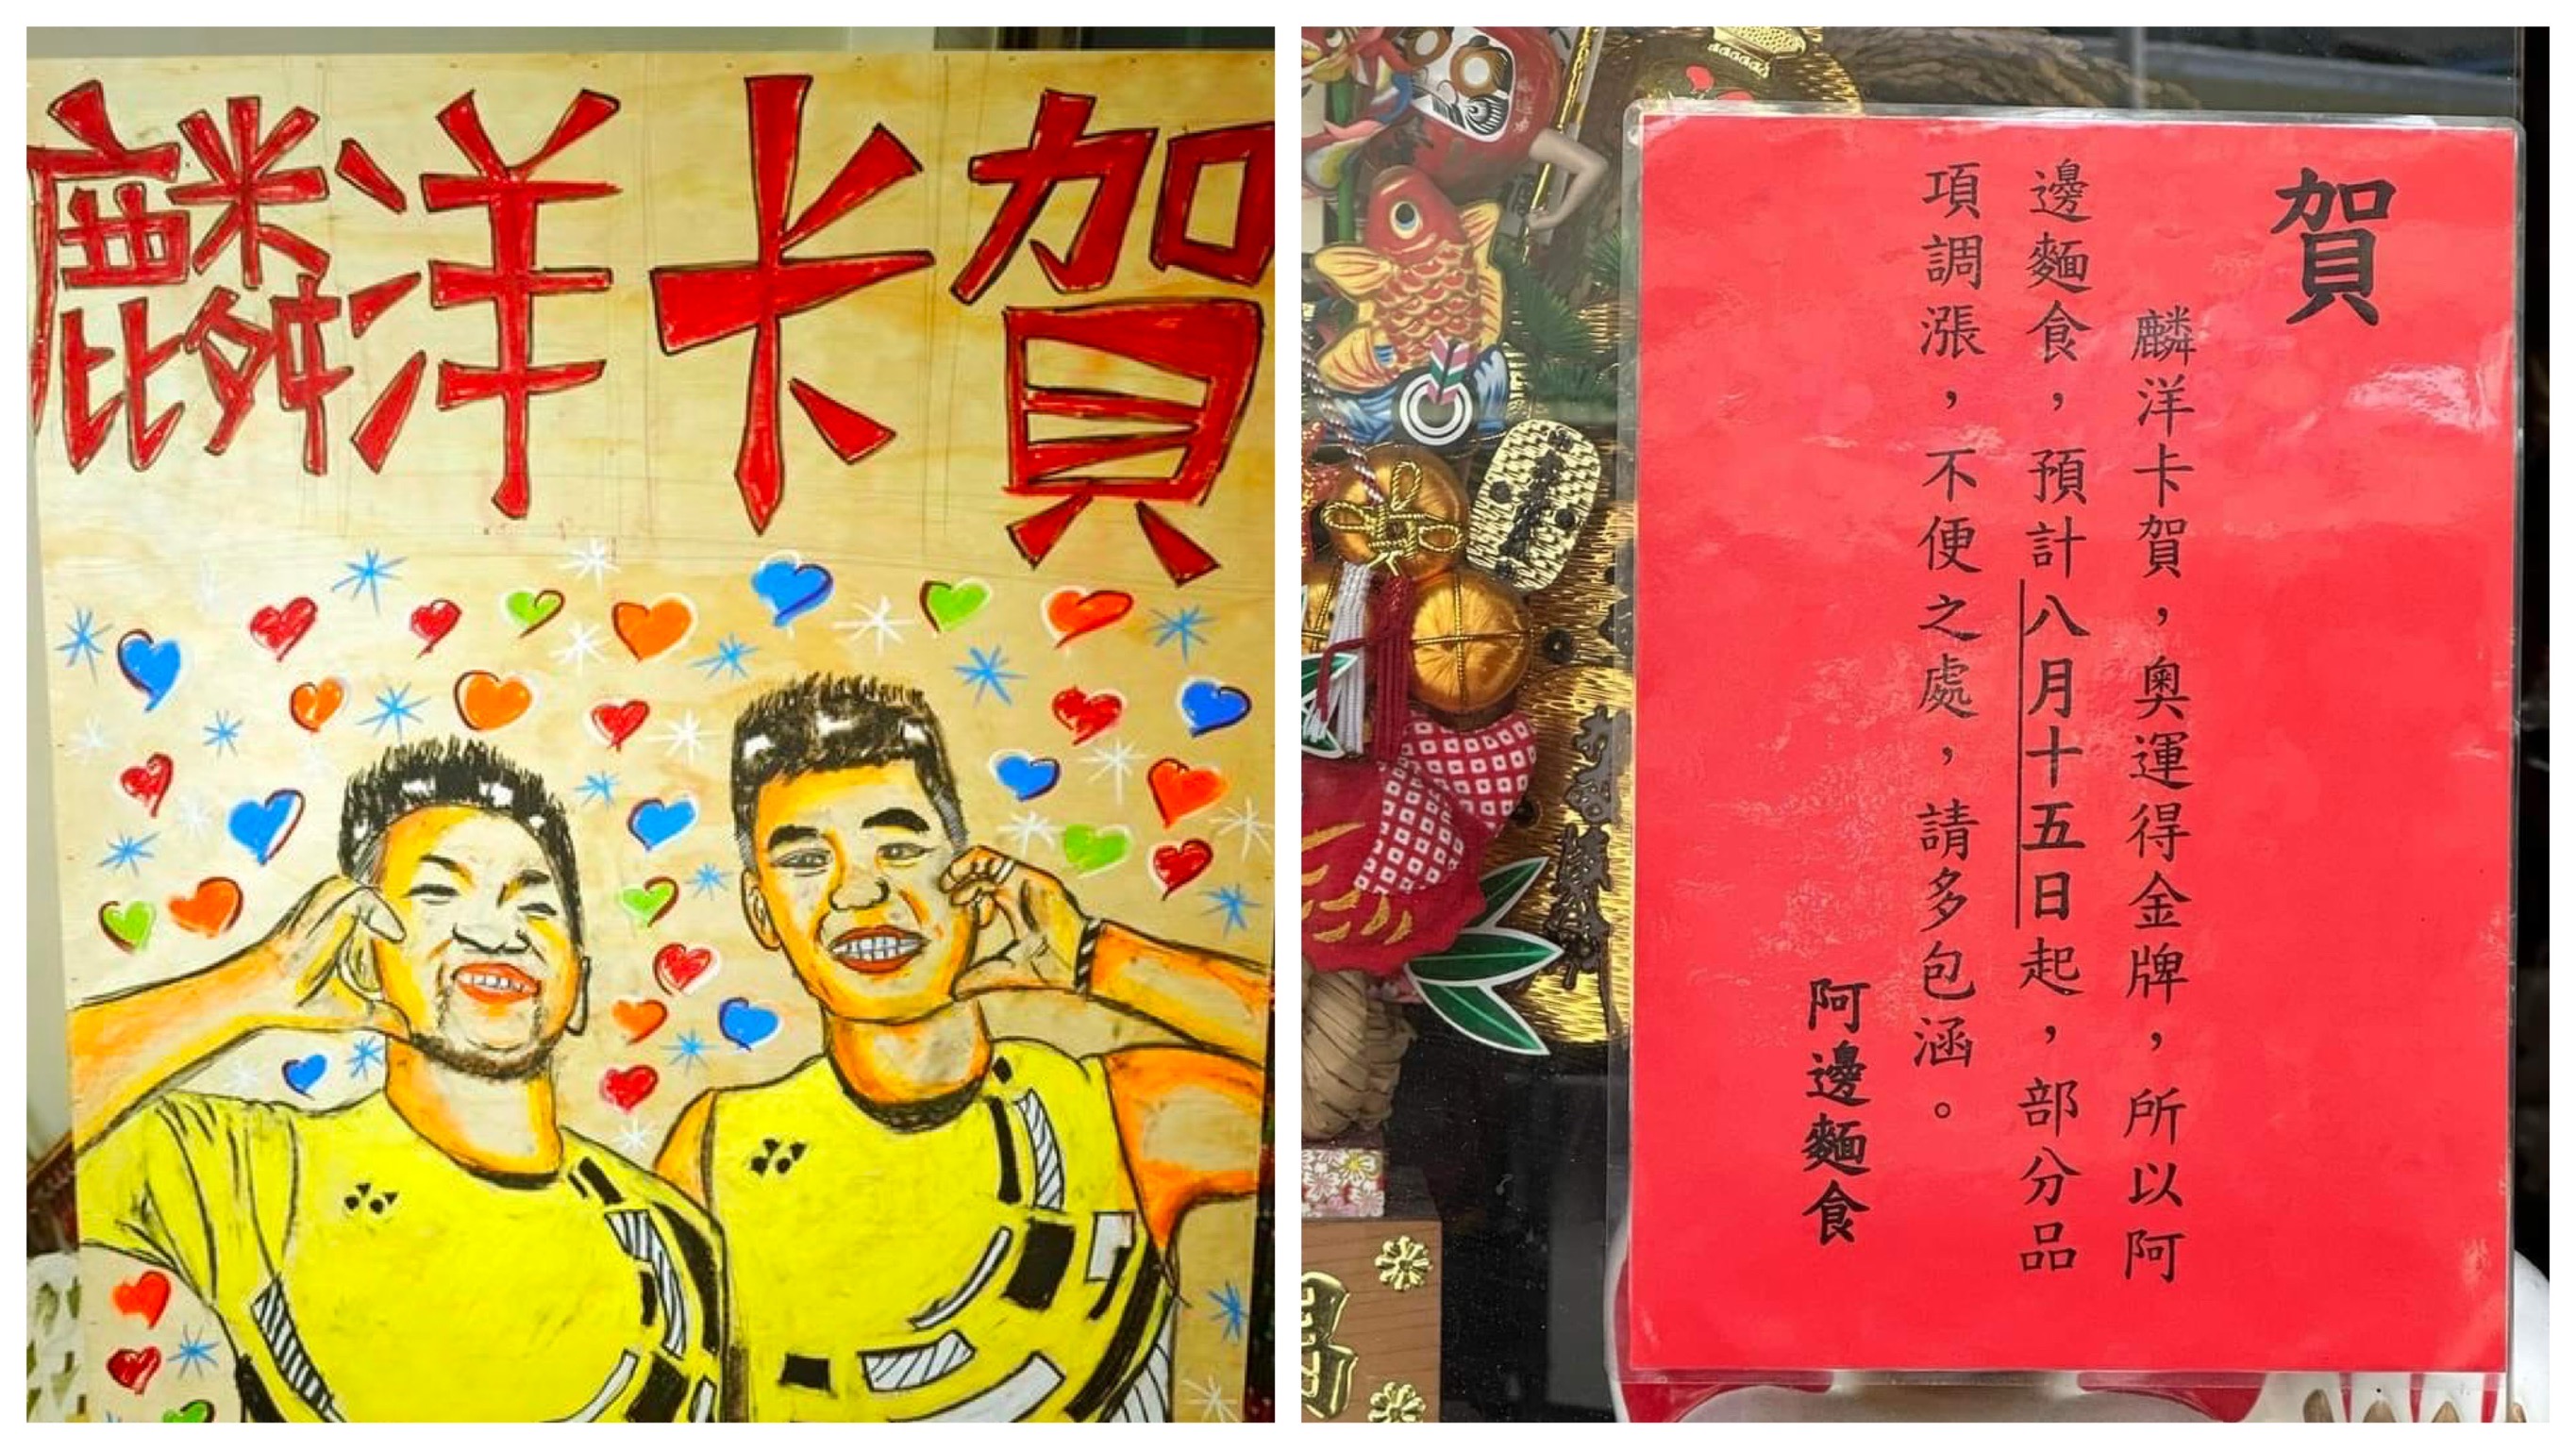 麟洋卡賀
賀
麟洋卡賀，奧運得金牌，所以阿
邊麵食，預計八月十五日起，部分品
項調漲，不便之處，請多包涵。
阿邊麵食